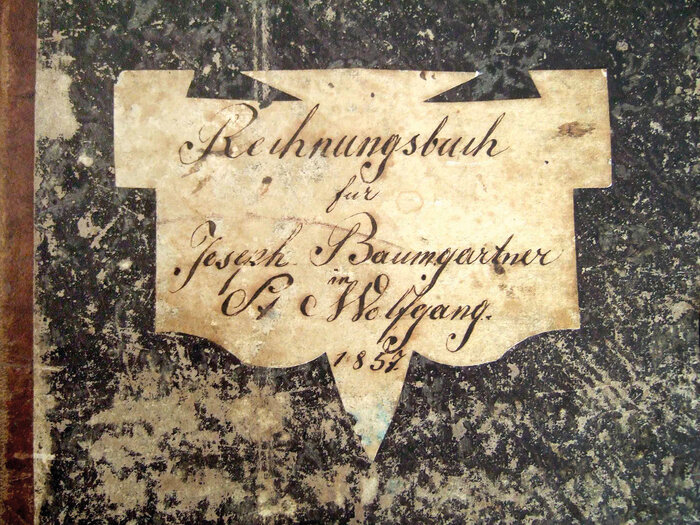 Rechnungsbuch
für
Joseph Baumgartner
in
St Wolfgang.
1857